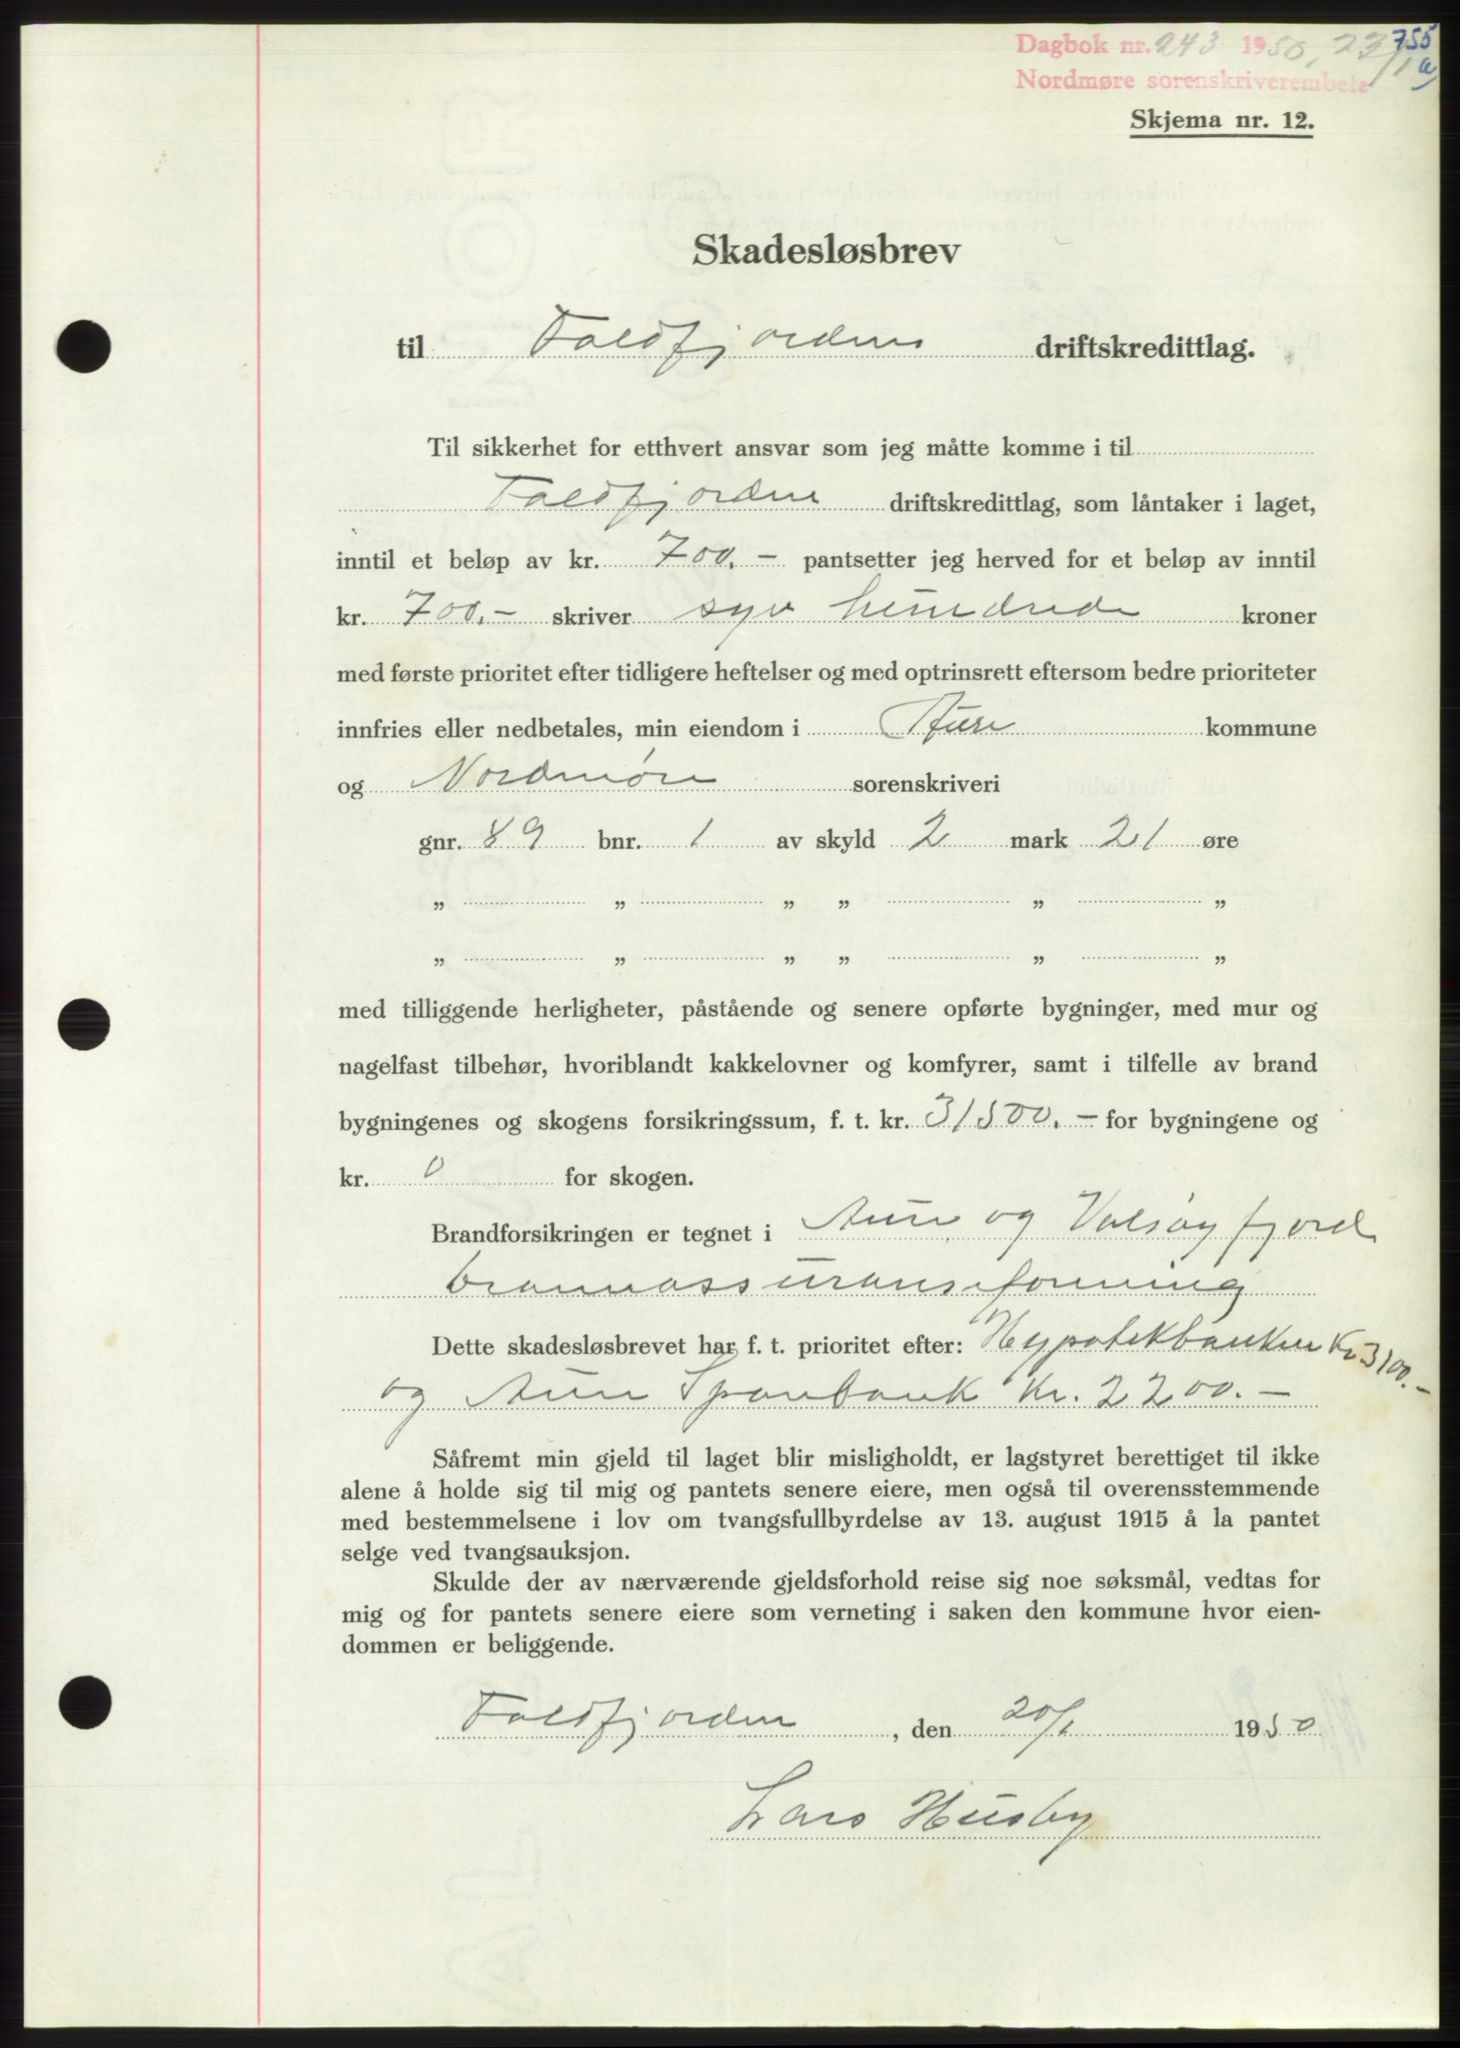 755
a
Dagbok nr. 243 1950, 23/1
Nordmøre sorenskriverembete
Skjema nr. 12.
Skadesløsbrev
til Foldfjordens driftskredittlag.
Til sikkerhet for etthvert ansvar som jeg måtte komme i til
Foldfjorden driftskredittlag, som låntaker i laget,
inntil et beløp av kr. 700.- pantsetter jeg herved for et beløp av inntil
kr. 700.- skriver syv hundrede kroner
med første prioritet efter tidligere heftelser og med optrinsrett eftersom bedre prioriteter
innfries eller nedbetales, min eiendom i Aure kommune
og Nordmøre sorenskriveri
gnr. 89 bnr. 1 av skyld 2 mark 21 øre
„ „ „ „ „ „
„ „ „ „ „ „
med tilliggende herligheter, påstående og senere opførte bygninger, med mur og
nagelfast tilbehør, hvoriblandt kakkelovner og komfyrer, samt i tilfelle av brand
bygningenes og skogens forsikringssum, f. t. kr. 31500.- for bygningene og
kr. 0 for skogen.
Brandforsikringen er tegnet i Aure og Valsøyfjord
brannassuranseforening
Dette skadesløsbrevet har f. t. prioritet efter: Hypotekbanken Kr 3100.-
og Aure Sparebank Kr. 2200.-
Såfremt min gjeld til laget blir misligholdt, er lagstyret berettiget til ikke
alene å holde sig til mig og pantets senere eiere, men også til overensstemmende
med bestemmelsene i lov om tvangsfullbyrdelse av 13. august 1915 å la pantet
selge ved tvangsauksjon.
Skulde der av nærværende gjeldsforhold reise sig noe søksmål, vedtas for
mig og for pantets senere eiere som verneting i saken den kommune hvor eien-
dommen er beliggende.
Foldfjorden, den 20/1 1950
Lars Husby